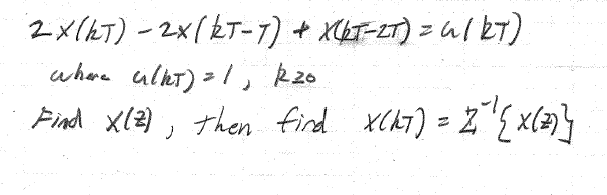 2x(kT) - 2x(kT-T) + x(kT-2T) = u(kT)
where u(kT) = 1, k≥0
Find X(z), then find x(kT) = Z⁻¹{X(z)}